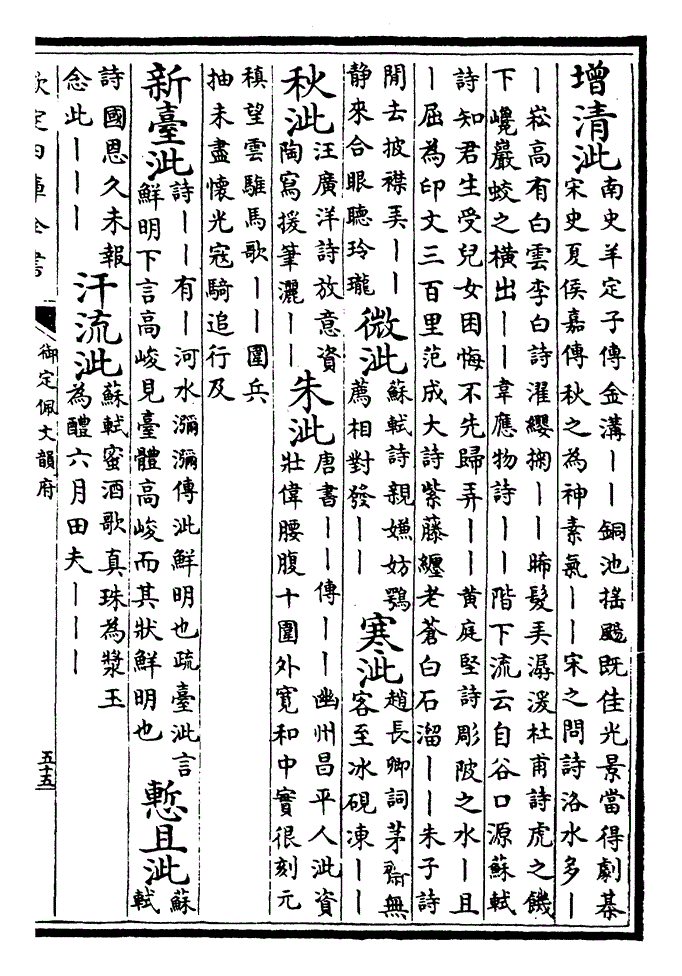 增清泚
南史羊定子傳金溝丨丨銅池搖颺既佳光景當得劇棊
宋史夏侯嘉傳秋之為神素氣丨丨宋之問詩洛水多丨
丨崧高有白雲李白詩濯纓掬丨丨晞髮弄潺湲杜甫詩虎之饑
下巉巖蛟之橫出丨丨韋應物詩丨丨階下流云自谷口源蘇軾
詩知君生受兒女困悔不先歸弄丨丨黃庭堅詩彫陂之水丨且
丨屈為印文三百里范成大詩紫藤纏老蒼白石溜丨丨朱子詩
閒去披襟弄丨丨
靜來合眼聽玲瓏
微泚
蘇軾詩親嫌妨鶚
薦相對發丨丨
寒泚
趙長卿詞茅齋無
客至冰硯凍丨丨
秋泚
汪廣洋詩放意資
陶寫援筆灑丨丨
朱泚
唐書丨丨傳丨丨幽州昌平人泚資
壯偉腰腹十圍外寬和中實很刻元
稹望雲騅馬歌丨丨圍兵
抽未盡懷光寇騎追行及
新臺泚
詩丨丨有丨河水瀰瀰傳泚鮮明也疏臺泚言
鮮明下言高峻見臺體高峻而其狀鮮明也
慙且泚
蘇
軾
詩國恩久未報
念此丨丨丨
汗流泚
蘇軾蜜酒歌真珠為漿玉
為醴六月田夫丨丨丨
欽定四庫全書
御定佩文韻府
五十五